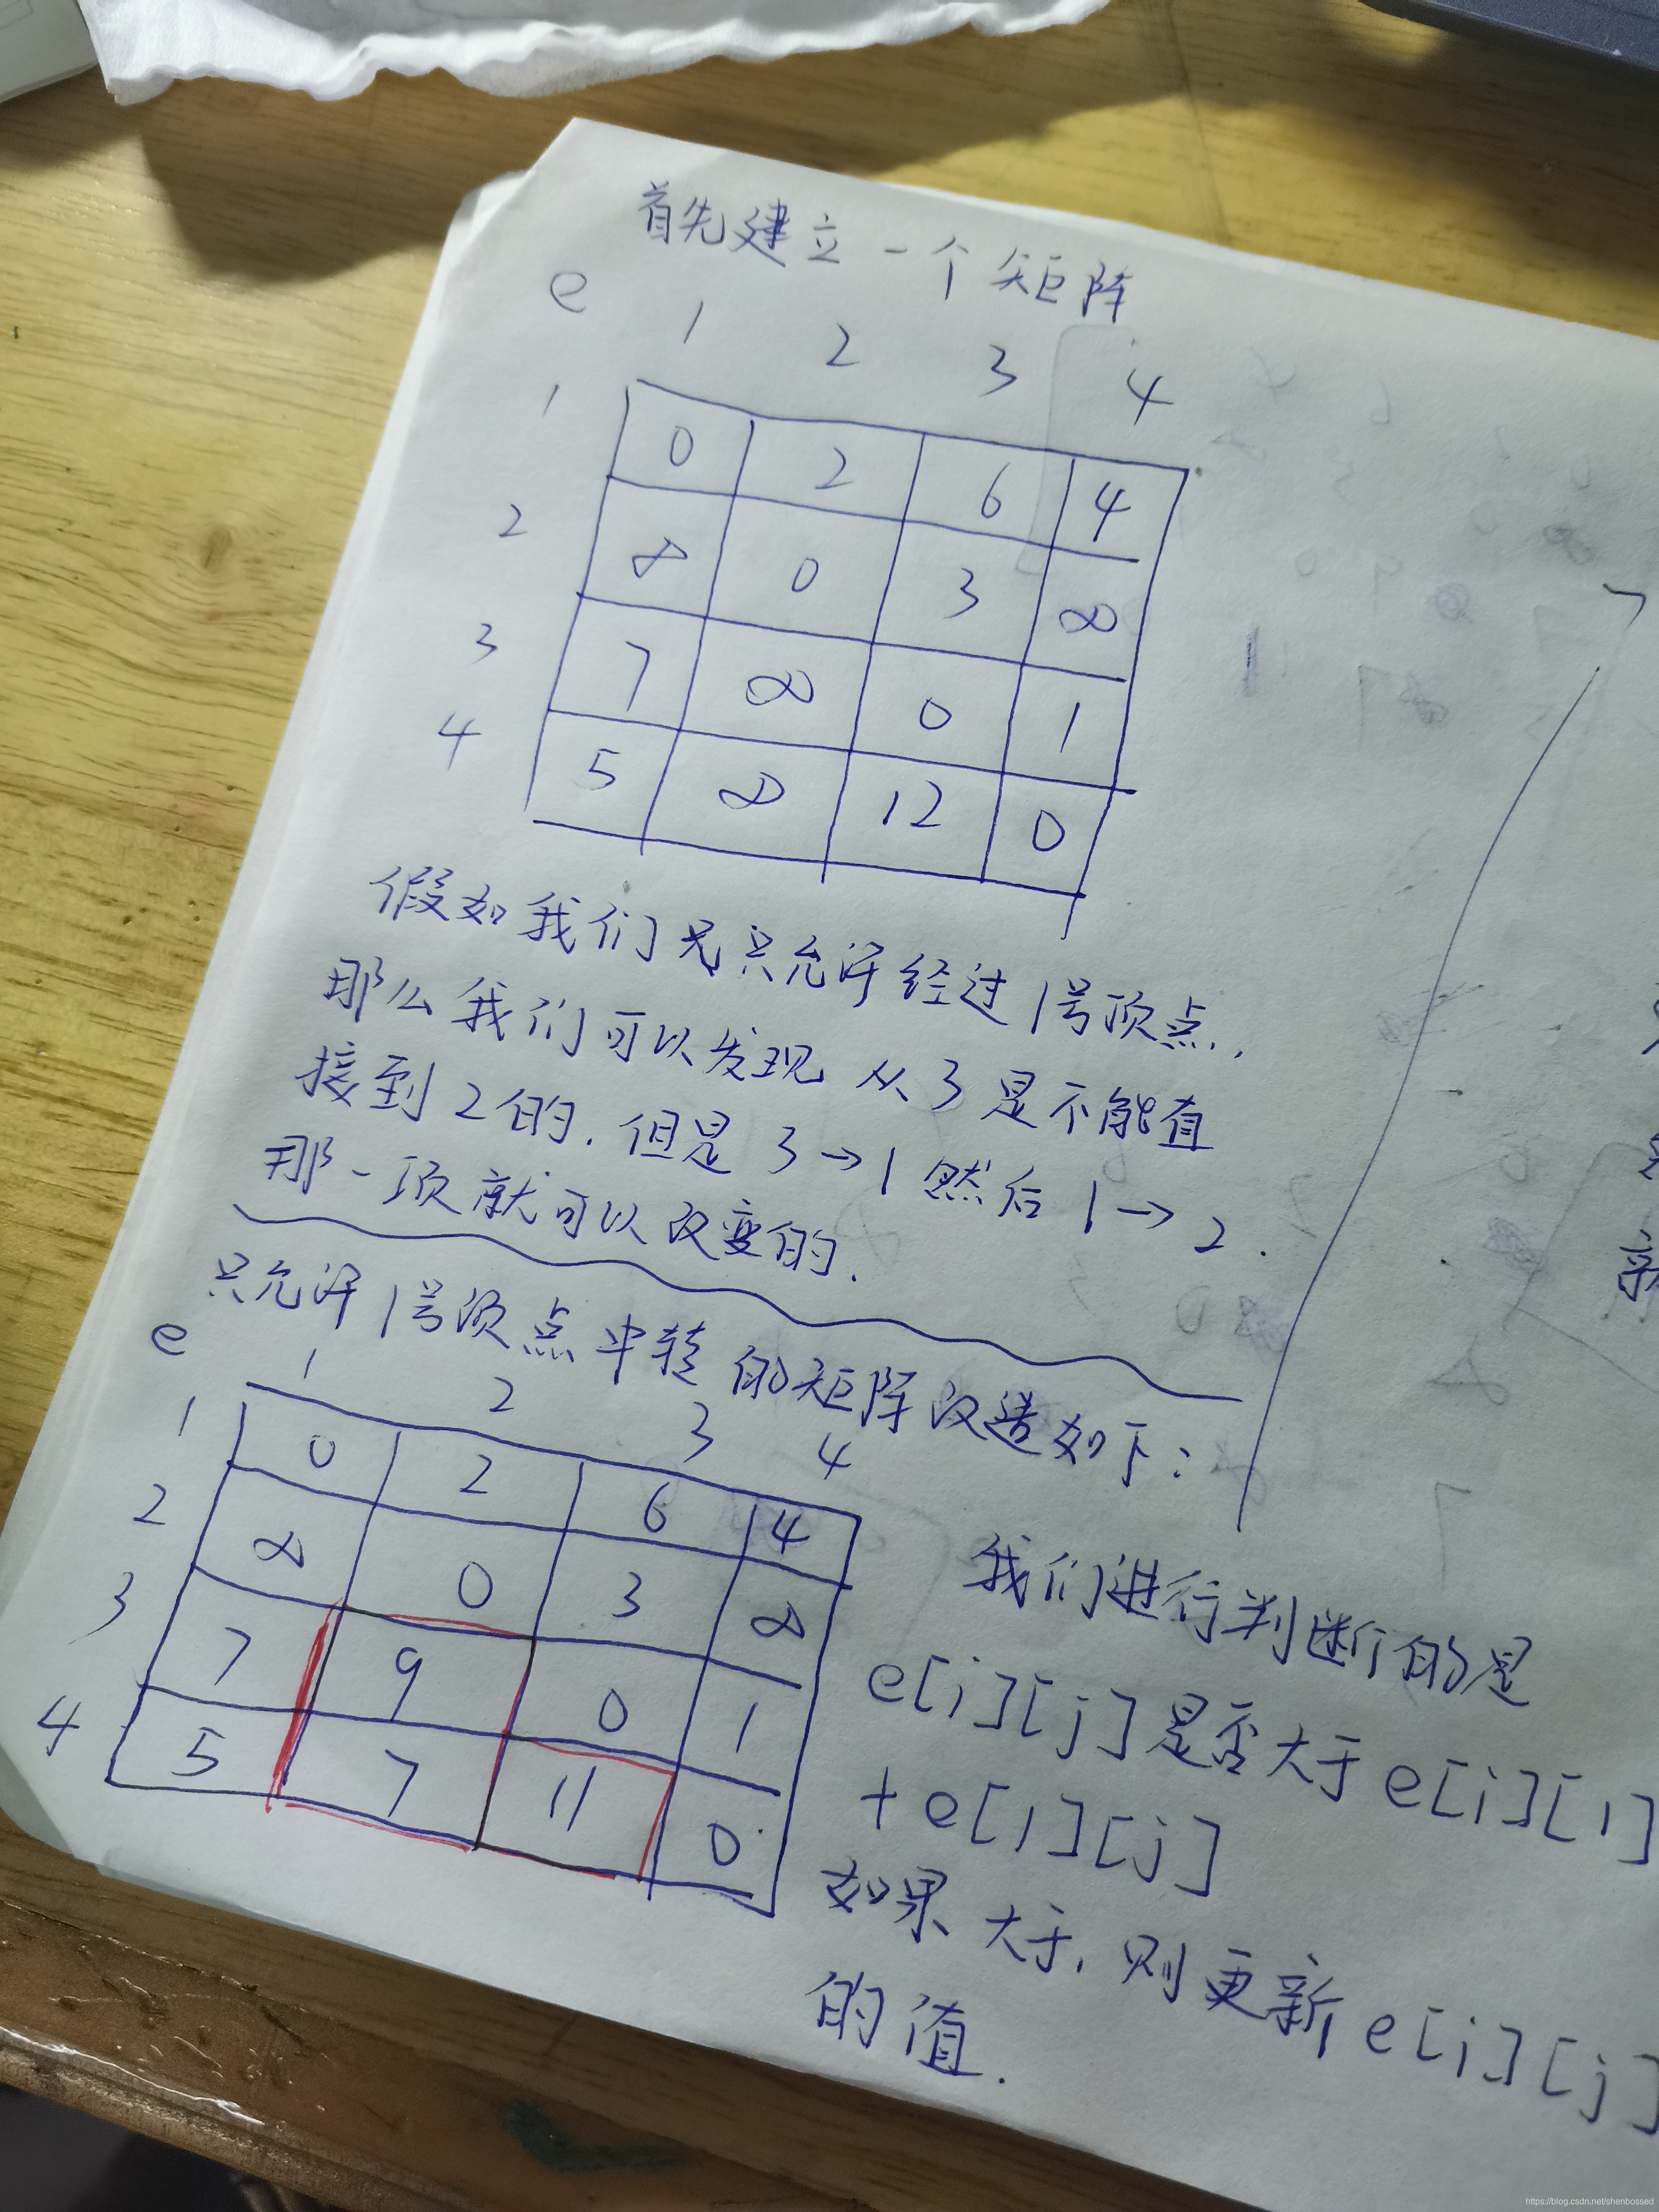 首先建立一个矩阵
e 1 2 3 4
1 0 2 6 4
2 ∞ 0 3 ∞
3 7 ∞ 0 1
4 5 ∞ 12 0
假如我们先只允许经过1号顶点,
那么我们可以发现 从3是不能直
接到2的. 但是 3→1 然后 1→2.
那一项就可以改变的.
只允许1号顶点中转的矩阵改造如下:
e 1 2 3 4
1 0 2 6 4
2 ∞ 0 3 ∞
3 7 9 0 1
4 5 7 11 0
我们进行判断的是
e[i][j]是否大于e[i][1]
+e[1][j]
如果大于,则更新e[i][j]
的值.
https://blog.csdn.net/shenbossed